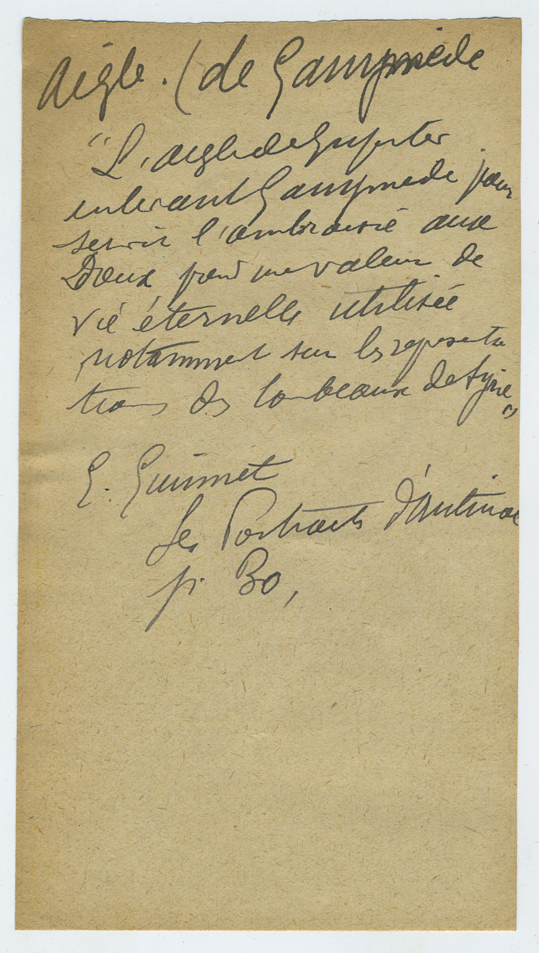 Aigle. (de Ganymède
"L'aigle de Jupiter
enlevant Ganymede pour
servir l'ambroisie aux
Dieux prend une valeur de
vie éternelle utilisée
notamment sur les représenta
tions des tombeaux de Syrie"
E. Guimet
Les Portraits d'Antinoé
p. 30,